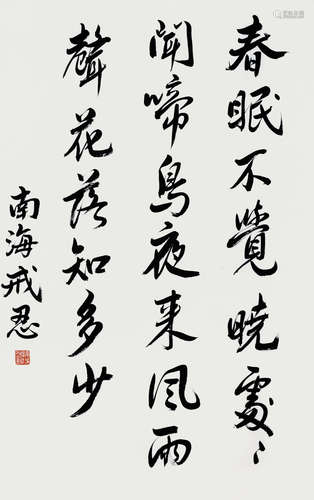 春眠不覺曉處〻
聞啼鳥夜来风雨
聲花落知多少
南海戒忍